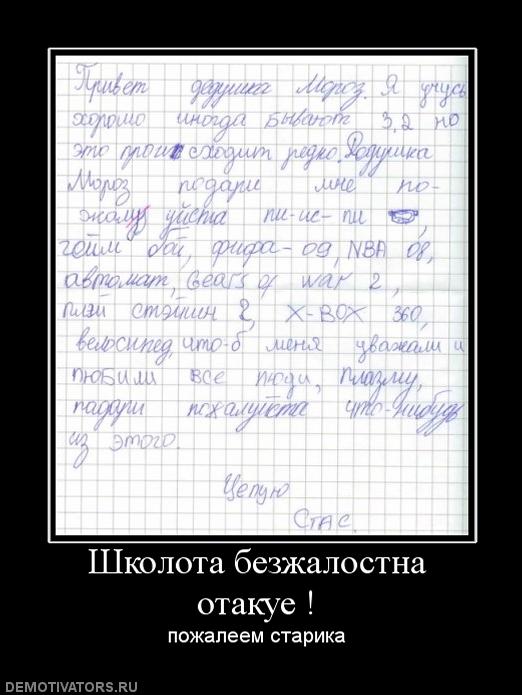 Привет дедушка Мороз. Я учусь
хорошо иногда бывают 3,2 но
это происходит редко. Дедушка
Мороз подари мне по-
жалуйста пи-ис-пи
гейм бой, фифа-09, NBA 08,
автомат, Gears of war 2,
плэй стэйшин 2, X-BOX 360,
велосипед, что-б меня уважали и
любили все люди, плазму,
падари пожалуйста что-нибудь
из этого.
Целую
Стас.
Школота безжалостна
отакуе !
пожалеем старика
DEMOTIVATORS.RU